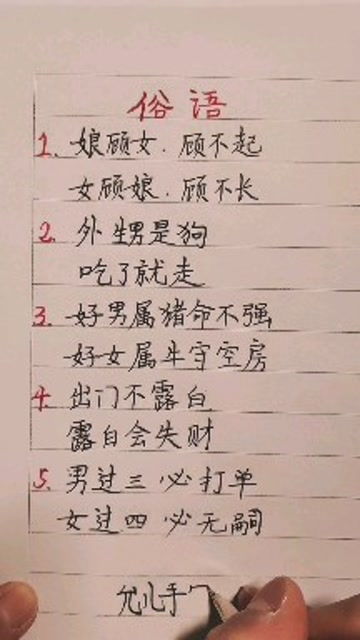 俗语
1. 娘顾女.顾不起
女顾娘.顾不长
2. 外甥是狗
吃了就走
3. 好男属猪命不强
好女属牛守空房
4. 出门不露白
露白会失财
5. 男过三必打单
女过四必无嗣
允儿手